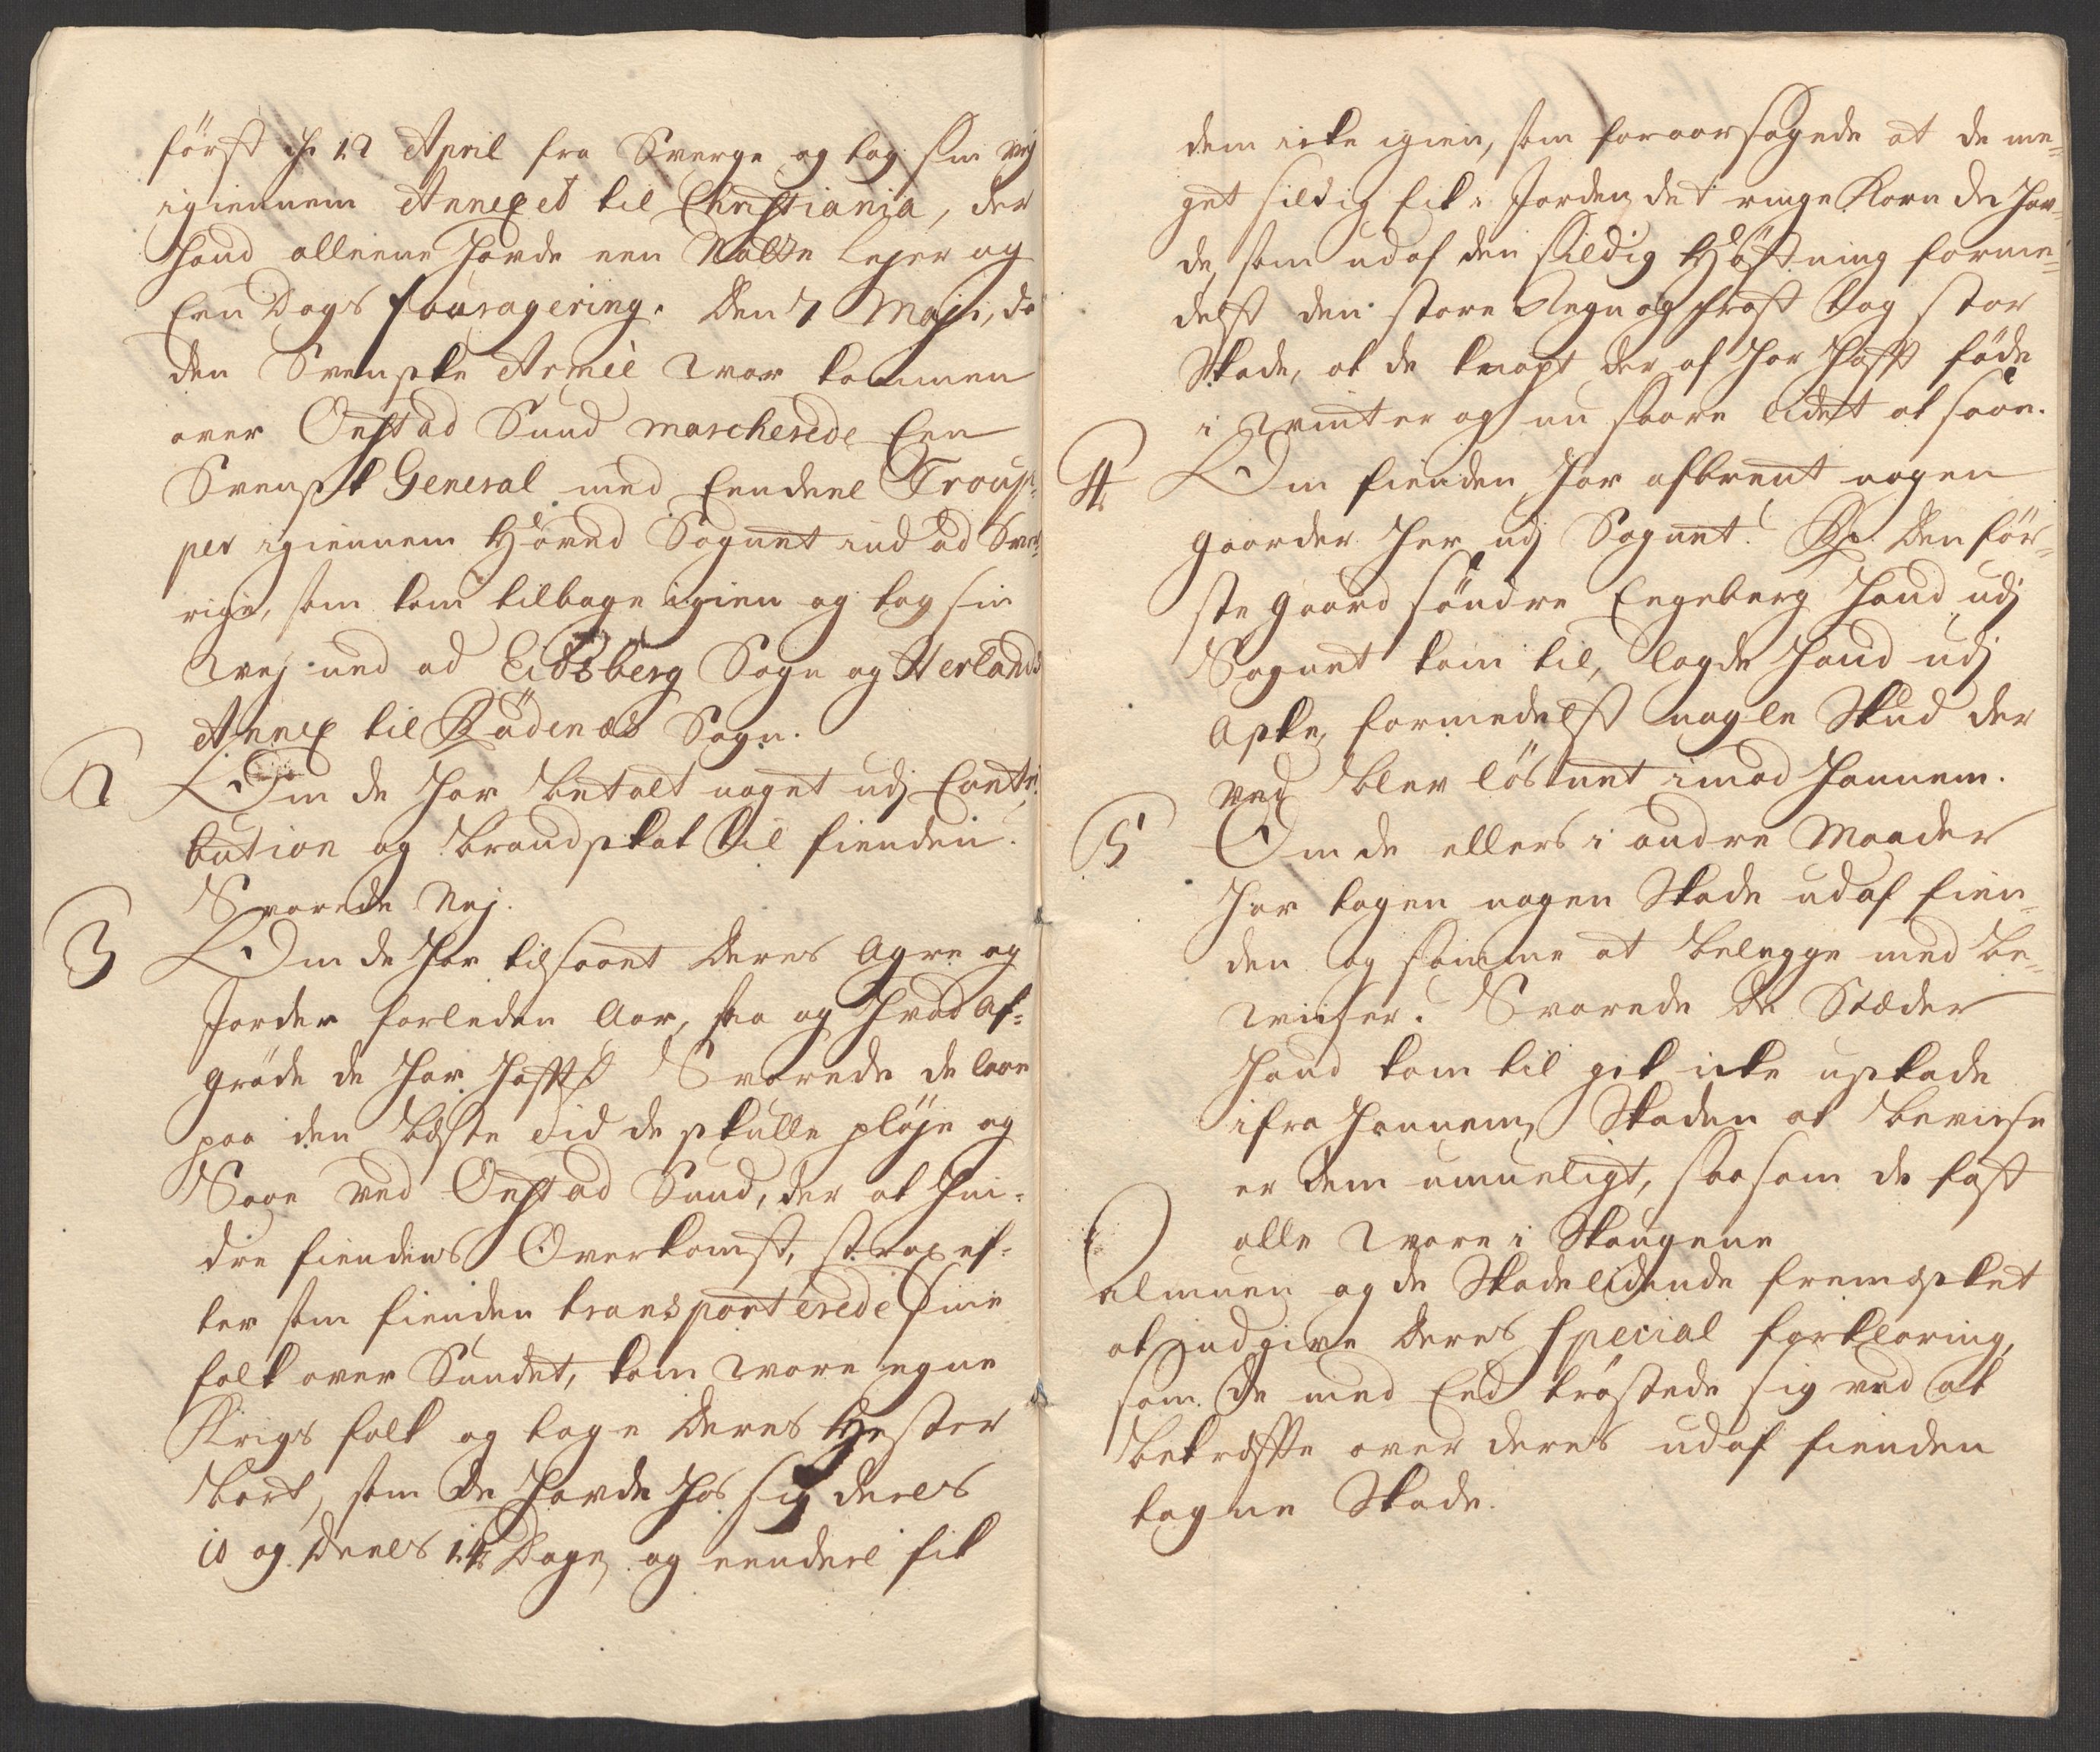 först d. 12 April fra Sverge og tog sin vej
igiennem Annexet til Christiania, der
hand alleene hafde een Natte Lejer og
Een Dags fouragering. Den 7 Maji, da
den Svenske Armée war kommen
over Onstad Sund marcherede Een
Svensk General med Eendeel Troup-
per igiennem Höved Sognet ind ad Sver-
rige, som kom tilbage igien og tog sin
wej ned ad Eidsberg Sogn og Herlands
Annex til Rödenæs Sogn.
2 Om de har betalt noget udj Contri-
bution og brandskat til fienden?
Svarede Nej.
3 Om de har tilsaaet deres Agre og
Jorder forleden Aar, saa og hvad Af-
gröde de har hafft? Svarede de laae
paa den beste tid de skulle pløje og
Saae ved Onstad Sund, der at hin-
dre fiendens Overkomst, strax ef-
ter som fienden transporterede sine
folk over Sundet, kom wore egne
Krigs folk og toge deres Hester
bort, som de hafde hos sig deels
10 og deels 14 Dage, og eendeel fik
dem icke igien, som foraarsagede at de me-
get sildig fik i Jorden det ringe Korn de haf-
de, som udaf den sildig Høstning forme-
delst den store Regn og frost tog stor
Skade, at de knapt der af har hafft föde
i winter og nu saare lidet at saae.
4 Om fienden har afbrent nogen
gaarder her udj Sognet? Rx. Den för-
ste gaard söndre Engeberg hand udj
Sognet kom til, lagde hand udj
Aske, formedelst nogle Skud der
ved blev lösnet imod hannem.
5 Om de ellers i andre Maader
har tagen nogen Skade udaf fien-
den og samme at belegge med be-
wiiser? Svarede De Stæder
hand kom til gik icke uskade
ifra hannem, Skaden at beviise
er dem umueligt, saasom de fast
alle ware i Skougene
almuen og de Skadelidende fremæsket
at indgive deres Special forklaring,
som de med Eed tröstede sig ved at
bekræffte over deres udaf fienden
tagne Skade.